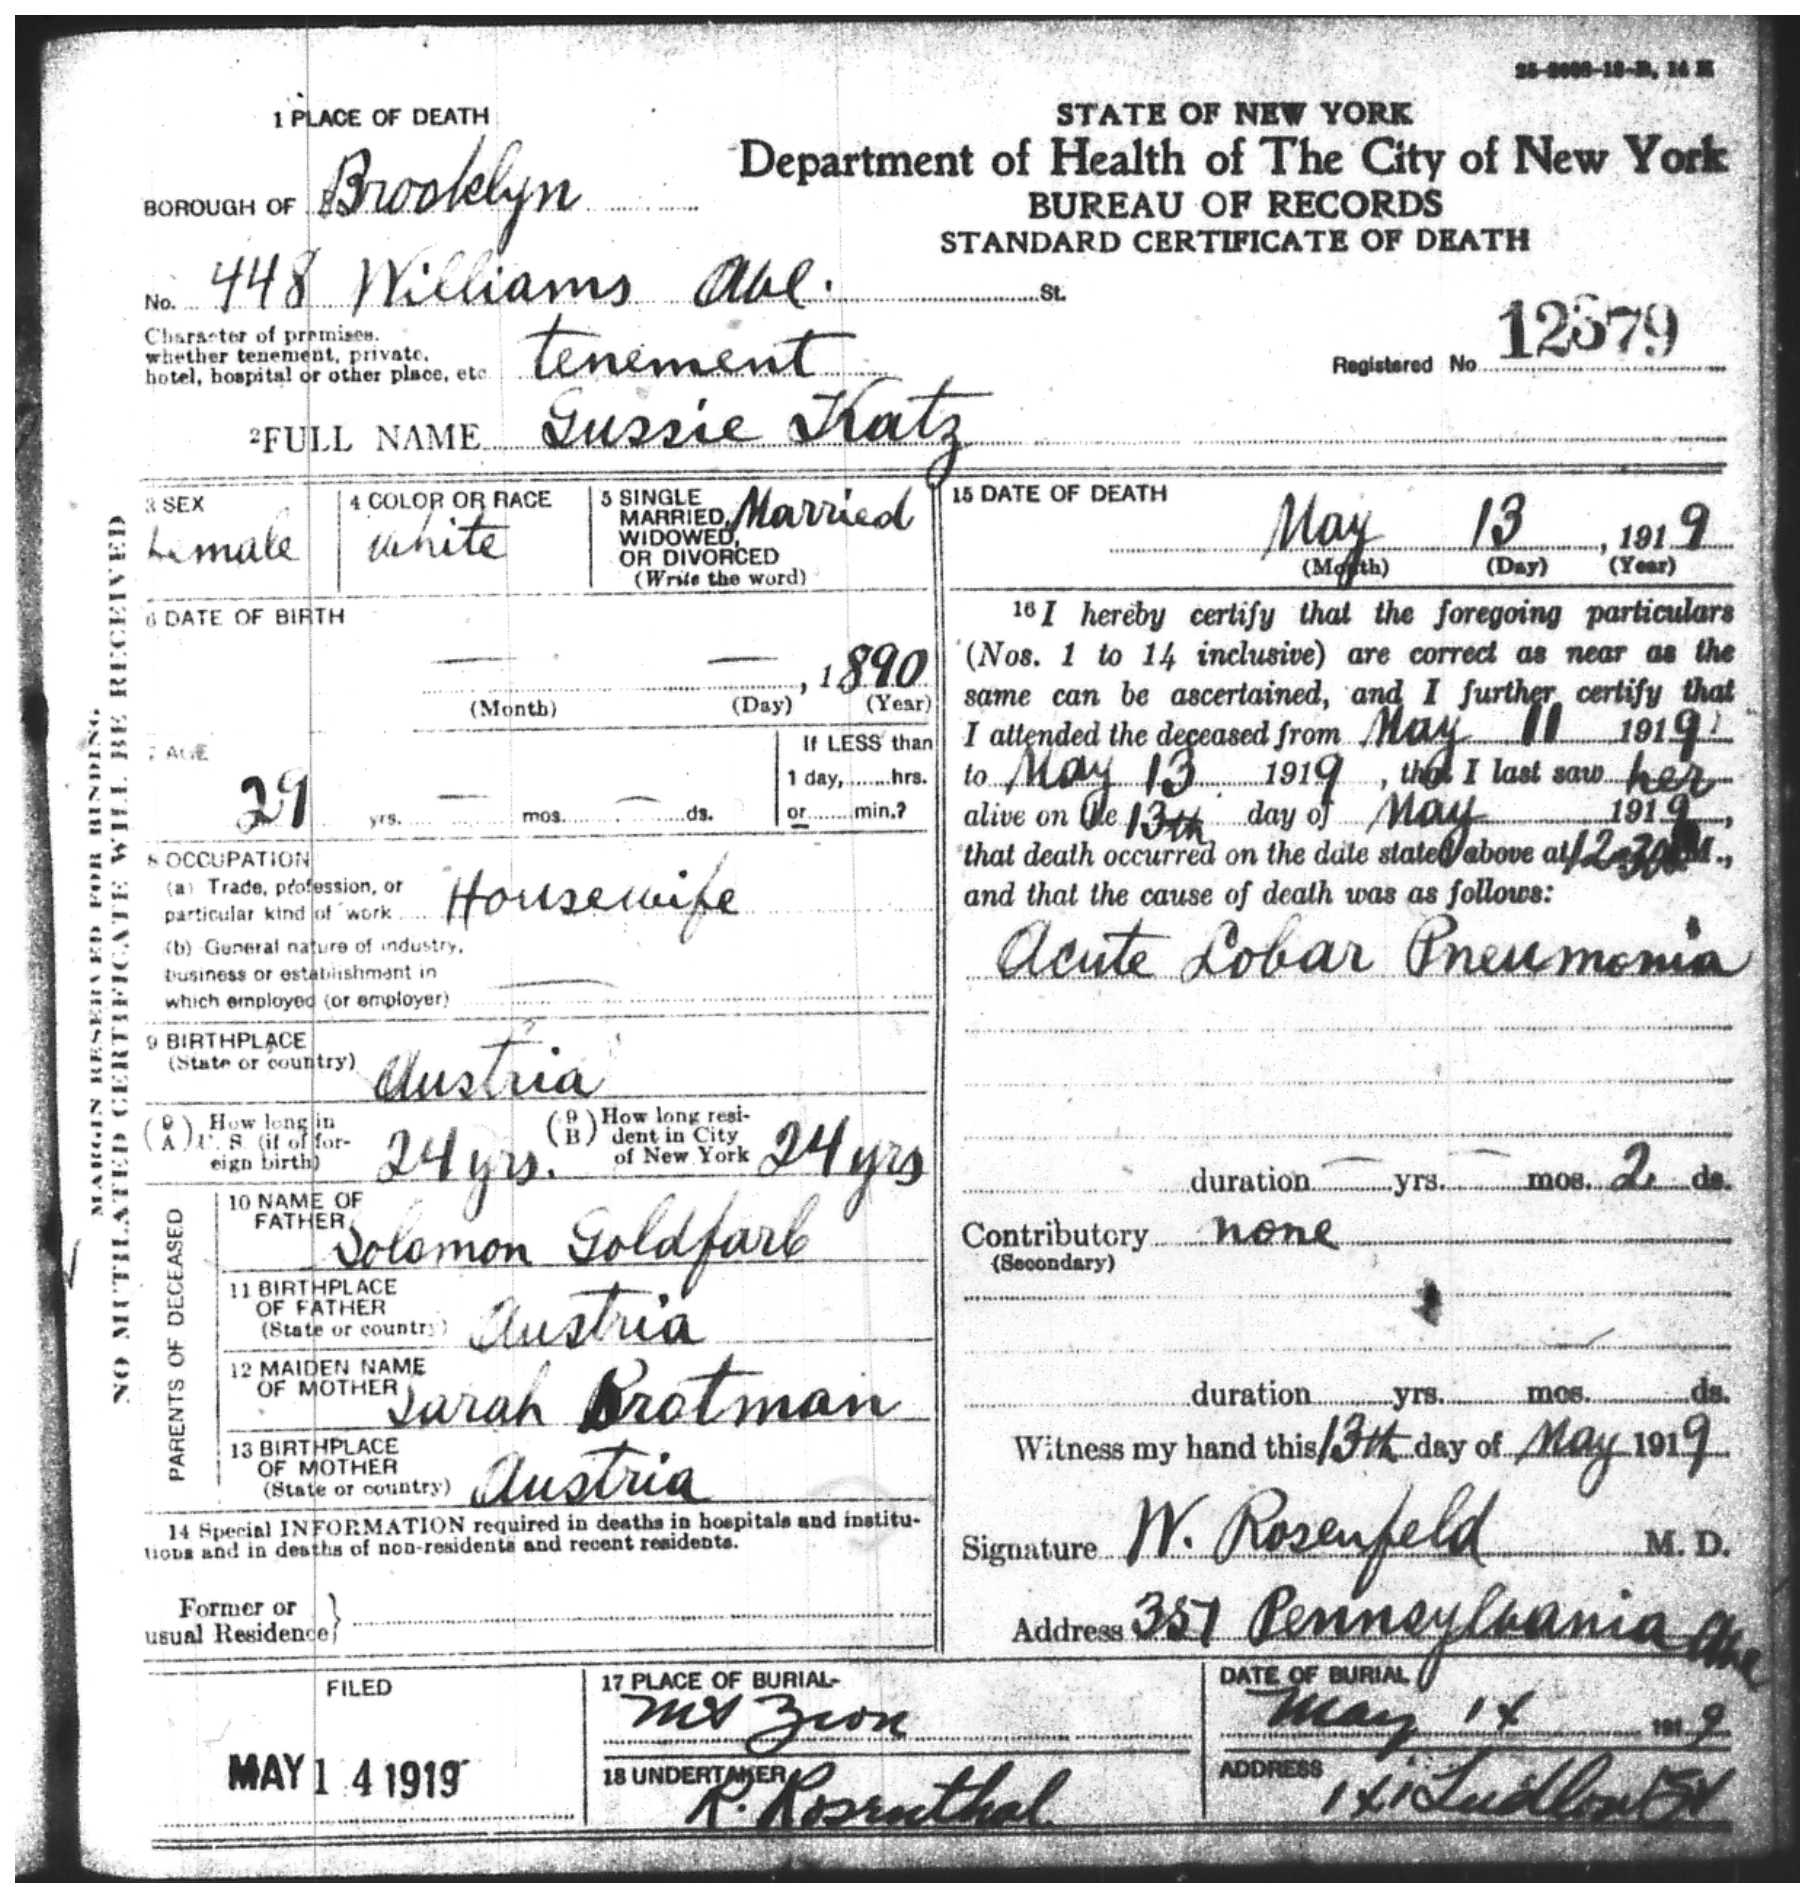 1 PLACE OF DEATH
BOROUGH OF Brooklyn
No. 448 Williams Ave. St.
Character of premises,
whether tenement, private,
hotel, hospital or other place, etc. tenement
STATE OF NEW YORK
Department of Health of The City of New York
BUREAU OF RECORDS
STANDARD CERTIFICATE OF DEATH
Registered No. 12579
2 FULL NAME Gussie Katz
MARGIN RESERVED FOR BINDING
NO MUTILATED CERTIFICATE WILL BE RECEIVED
3 SEX
Female
4 COLOR OR RACE
White
5 SINGLE
MARRIED,
WIDOWED,
OR DIVORCED
(Write the word)
Married
6 DATE OF BIRTH
— — , 1890
(Month) (Day) (Year)
7 AGE
29 yrs. — mos. — ds.
If LESS than
1 day, hrs.
or min.?
8 OCCUPATION
(a) Trade, profession, or
particular kind of work Housewife
(b) General nature of industry,
business or establishment in
which employed (or employer) —
9 BIRTHPLACE
(State or country) Austria
(9 A) How long in
U. S. (if of for-
eign birth) 24 yrs.
(9 B) How long resi-
dent in City
of New York 24 yrs
PARENTS OF DECEASED
10 NAME OF
FATHER Solomon Goldfarb
11 BIRTHPLACE
OF FATHER
(State or country) Austria
12 MAIDEN NAME
OF MOTHER Sarah Brotman
13 BIRTHPLACE
OF MOTHER
(State or country) Austria
14 Special INFORMATION required in deaths in hospitals and institu-
tions and in deaths of non-residents and recent residents.
Former or
usual Residence
15 DATE OF DEATH
May 13 , 1919
(Month) (Day) (Year)
16 I hereby certify that the foregoing particulars
(Nos. 1 to 14 inclusive) are correct as near as the
same can be ascertained, and I further certify that
I attended the deceased from May 11 1919
to May 13 1919, that I last saw her
alive on the 13th day of May 1919,
that death occurred on the date stated above at 12-30 M.,
and that the cause of death was as follows:
Acute Lobar Pneumonia
duration — yrs. — mos. 2 ds.
Contributory none
(Secondary)
duration yrs. mos. ds.
Witness my hand this 13th day of May 1919
Signature W. Rosenfeld M. D.
Address 357 Pennsylvania Ave
FILED
MAY 14 1919
17 PLACE OF BURIAL
Mt Zion
DATE OF BURIAL
May 14 1919
18 UNDERTAKER
R. Rosenthal
ADDRESS
141 Ludlow St